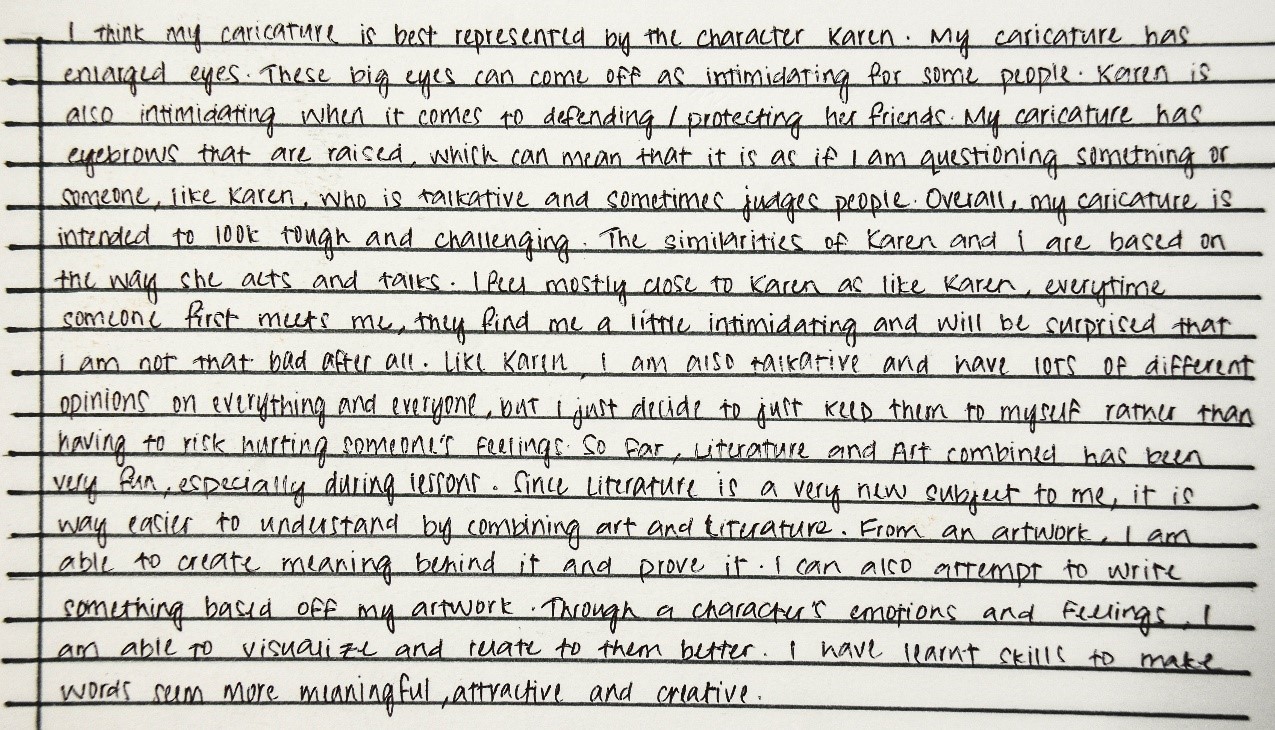 I think my caricature is best represented by the character Karen. My caricature has
enlarged eyes. These big eyes can come off as intimidating for some people. Karen is
also intimidating when it comes to defending / protecting her friends. My caricature has
eyebrows that are raised, which can mean that it is as if I am questioning something or
someone, like Karen, who is talkative and sometimes judges people. Overall, my caricature is
intended to look tough and challenging. The similarities of Karen and I are based on
the way she acts and talks. I feel mostly close to Karen as like Karen, everytime
someone first meets me, they find me a little intimidating and will be surprised that
I am not that bad after all. Like Karen, I am also talkative and have lots of different
opinions on everything and everyone, but I just decide to just keep them to myself rather than
having to risk hurting someone's feelings. So far, Literature and Art combined has been
very fun, especially during lessons. Since Literature is a very new subject to me, it is
way easier to understand by combining art and Literature. From an artwork, I am
able to create meaning behind it and prove it. I can also attempt to write
something based off my artwork. Through a character's emotions and feelings, I
am able to visualize and relate to them better. I have learnt skills to make
words seem more meaningful, attractive and creative.